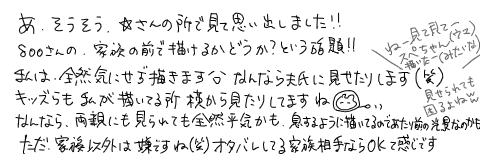 あ、そうそう、☆さんの所で見て思い出しました!!
800さんの、家族の前で描けるかどうか?という話題!!
私は、全然気にせず描きます なんなら夫氏に見せたりします(笑)
キッズらも私が描いてる所 横から見たりしてますね
なんなら、両親にも見られても全然平気かも、息するように描いてるのであたり前の光景なのかも
ただ、家族以外は嫌ですね(笑)オタバレしてる家族相手ならOKて感じです
ねー見て見てー
スペちゃん(ウマ)
描いたー(みたいな
見せられても
困るよねw